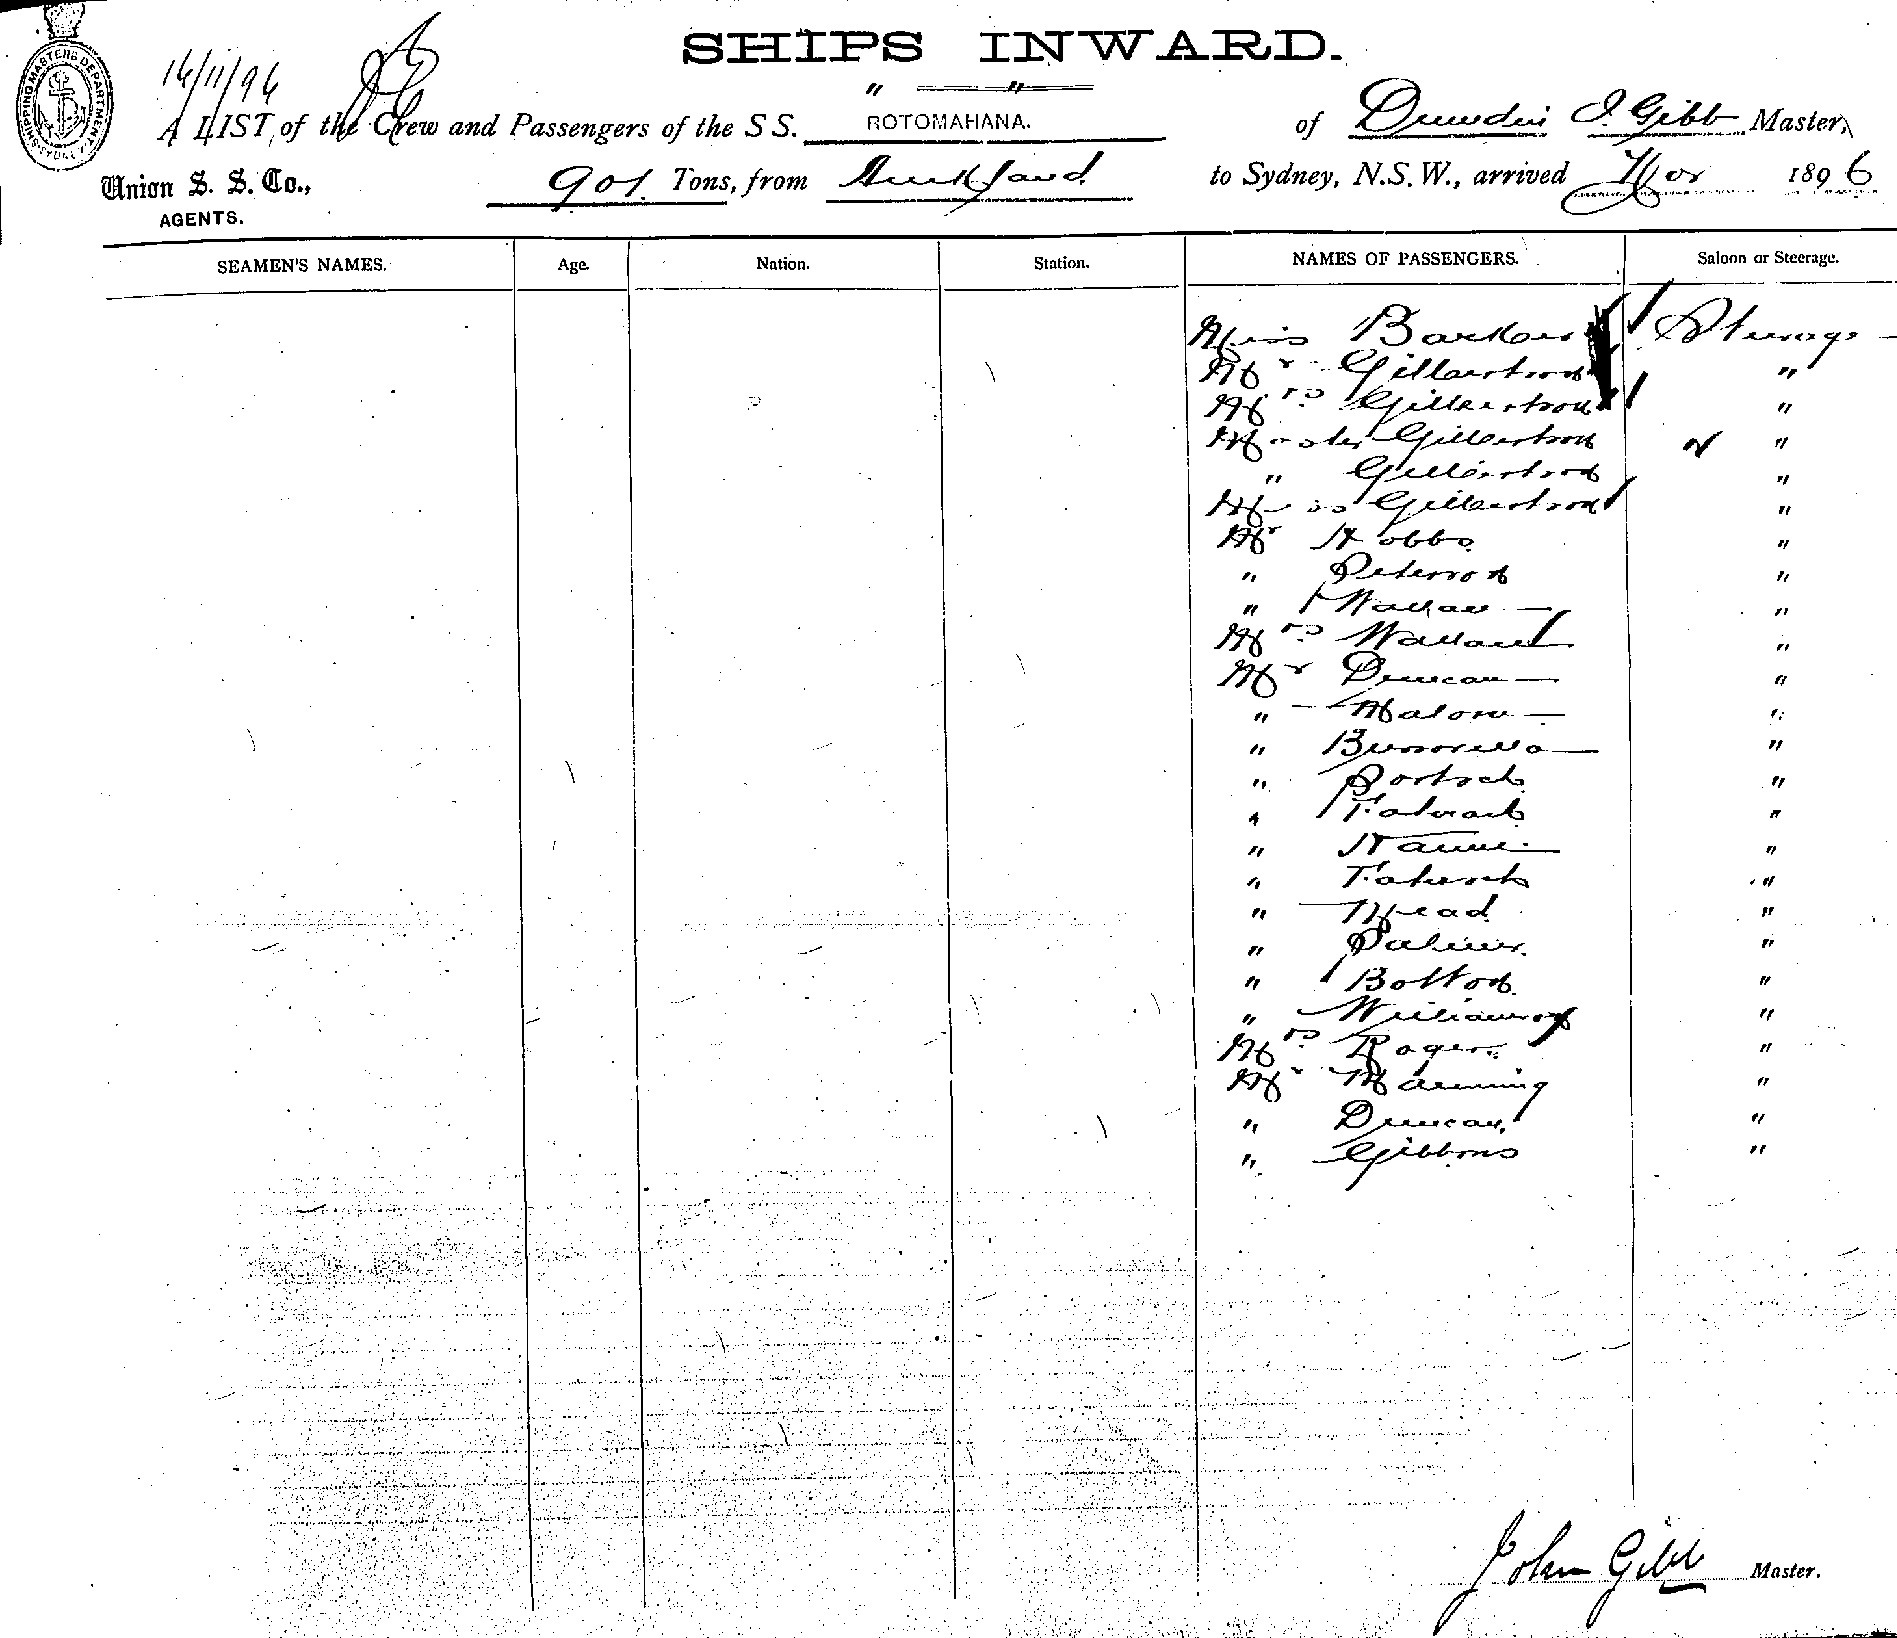 SHIPPING MASTERS DEPARTMENT SYDNEY
16/11/96
SHIPS INWARD.
" "
A LIST of the Crew and Passengers of the S S. ROTOMAHANA. of Dunedin J. Gibb Master,
Union S. S. Co., 901 Tons, from Auckland to Sydney, N.S.W., arrived Nov 1896
AGENTS.
SEAMEN'S NAMES. Age. Nation. Station. NAMES OF PASSENGERS. Saloon or Steerage.
Miss Barker Steerage
Mr Gilbertson "
Mrs Gilbertson "
Master Gilbertson "
" Gilbertson "
Miss Gilbertson "
Mr Hobbs "
" Peterson "
" Wallace "
Mrs Wallace "
Mr Duncan "
" Malone "
" "
" "
" "
" "
" "
" Mead "
" Palmer "
" Botton "
" Williamson "
Mrs Rogers "
Mr Manning "
" Duncan "
" Gibbons "
John Gibb Master.